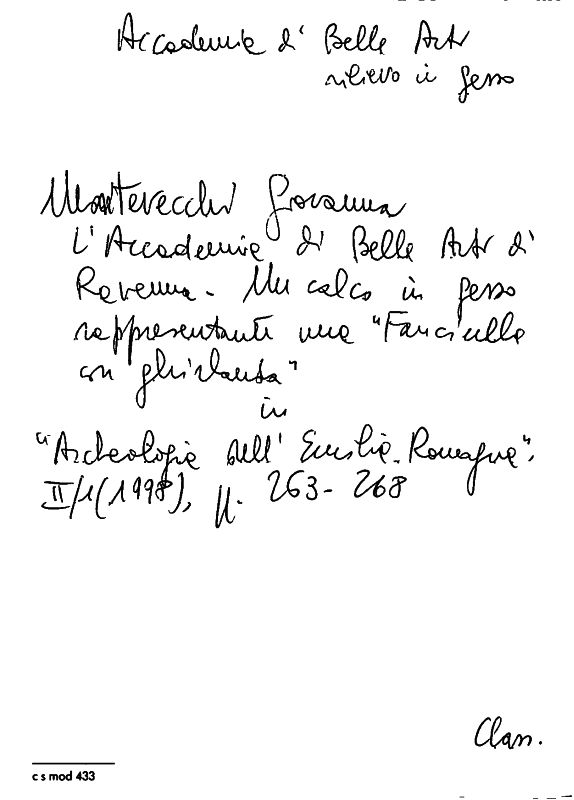 Accademia di Belle Arti
rilievo in gesso
Montevecchi Giovanna
L'Accademia di Belle Arti di
Ravenna. Un calco in gesso
rappresentante una "Fanciulla
con ghirlanda"
in
"Archeologia dell'Emilia-Romagna",
II/1 (1998), pp. 263-268
Class.
c s mod 433